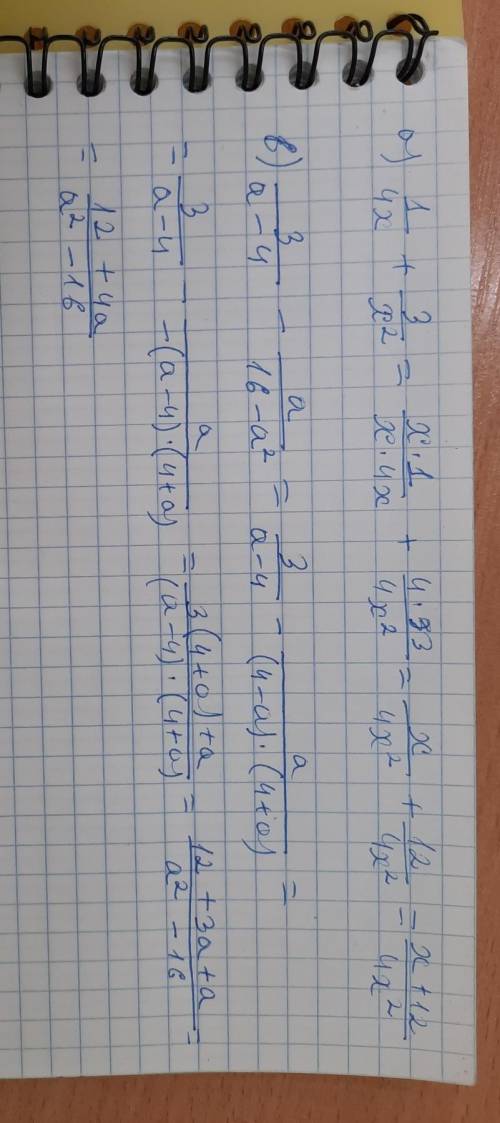 а) 1/4x + 3/x² = x·1/x·4x + 4·3/4x² = x/4x² + 12/4x² = x+12/4x²
в) 3/a-4 - a/16-a² = 3/a-4 - a/(4-a)·(4+a) =
= 3/a-4 - a/-(a-4)·(4+a) = 3(4+a)+a/(a-4)·(4+a) = 12+3a+a/a²-16 =
= 12+4a/a²-16